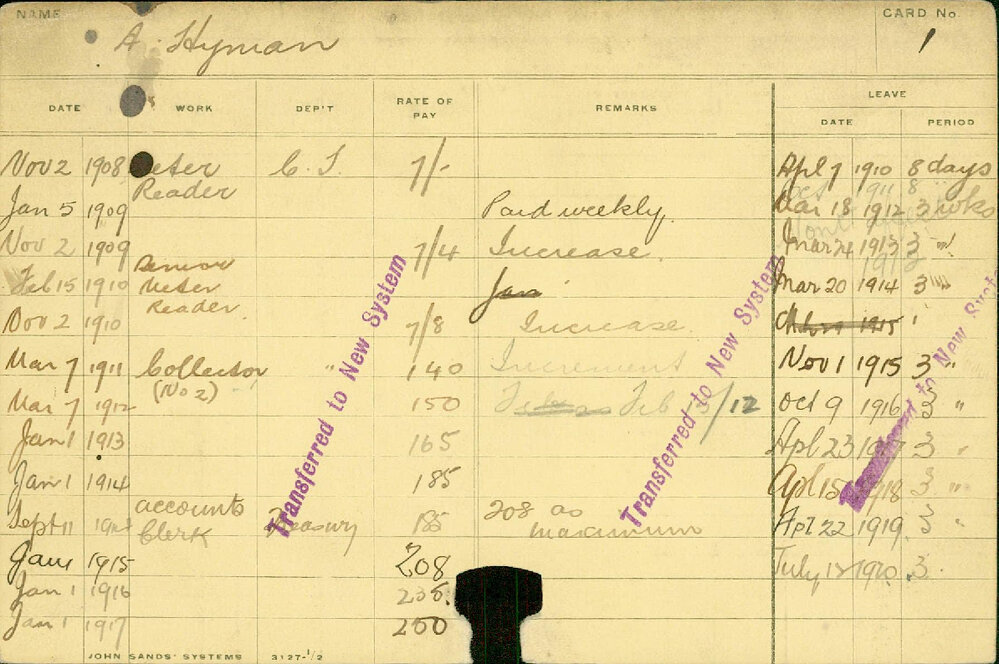 NAME
CARD No.
A. Hyman
1
DATE WORK DEP'T RATE OF PAY REMARKS LEAVE
DATE PERIOD
Nov 2 1908 Meter Reader C. T. 7/- Apl 7 1910 8 days
Jan 5 1909 Paid weekly. Mar 18 1912 3 wks
Nov 2 1909 7/4 Increase. Mar 24 1913 3 "
Feb 15 1910 Senior Meter Reader. Jan Mar 20 1914 3 "
Nov 2 1910 7/8 Increase. 1915
Mar 7 1911 Collector (No 2) " 140 Increment Nov 1 1915 3 "
Mar 7 1912 150 Feb /12 Oct 9 1916 3 "
Jan 1 1913 165 Apl 23 3 "
Jan 1 1914 185 Apl 15 1918 3 "
Sept 11 accounts Clerk Treasury 185 208 as maximum Apl 22 1919 3 "
Jan 1 1915 208 July 1920 3.
Jan 1 1916
Jan 1 1917 250
Transferred to New System
Transferred to New System
to New Syst
JOHN SANDS' SYSTEMS 3127-1/2